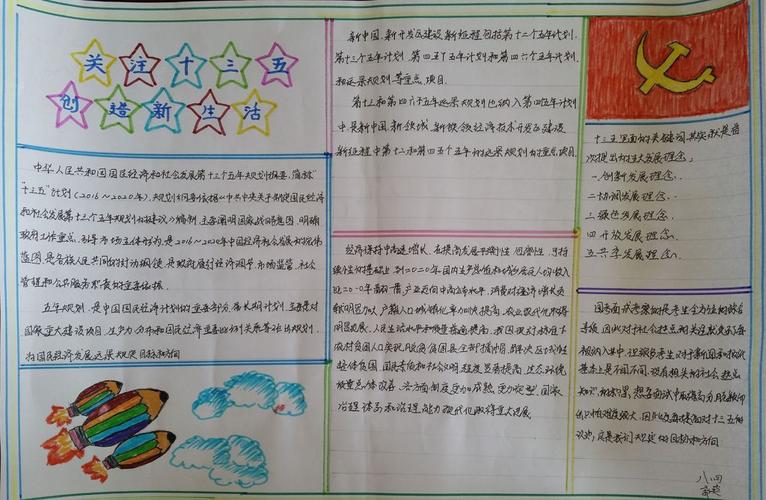 关注十三五
创造新生活
中华人民共和国国民经济和社会发展第十三个五年规划纲要,简称
"十三五"计划(2016~2020年),规划纲要依据《中共中央关于制定国民经济
和社会发展第十三个五年规划的建议》编制,主要阐明国家战略意图,明确
政府工作重点,引导市场主体行为,是2016~2020年中国经济社会发展的宏伟
蓝图,是各族人民共同的行动纲领,是政府履行经济调节、市场监管、社会
管理和公共服务职责的重要依据
五年规划,是中国国民经济计划的重要部分,属长期计划,主要是对
国家重大建设项目、生产力分布和国民经济重要比例关系等作出规划,
为国民经济发展远景规定目标和方向
新中国,新开发区建设,新征程包括第十二个五年计划,
第十三个五年计划
和远景规划等重点项目.
中,是新中国,新领域,新城
新征程中第十二和第四五个五年的远景规划的重点项目
经济保持中高速增长,在提高发展平衡性、包容性、可持
续性的基础上,到2020年国内生产总值和城乡居民人均收入
比2010年翻一番,产业迈向中高端水平,消费对经济增长贡
献明显加大,户籍人口城镇化率加快提高,农业现代化取得
明显进展,人民生活水平和质量普遍提高,我国现行标准下
农村贫困人口实现脱贫,贫困县全部摘帽,解决区域性
整体贫困,国民素质和社会文明程度显著提高,生态环境
质量总体改善,各方面制度更加成熟更加定型,国家
治理体系和治理能力现代化取得重大进展.
十三五里面的关键词其实就是首
次提出的五大发展理念:
一.创新发展理念.
二.协调发展理念.
三.绿色发展理念.
四.开放发展理念.
五.共享发展理念.
国考面试考察的是考生全方位的综合
素质,因此对于社会热点的关注就免不了要
被纳入其中,
基本上是不同不同,没有相关的社会热点
知识的积累,想在面试中取得高分
议论,这是我们规定的目标和方向
八.四